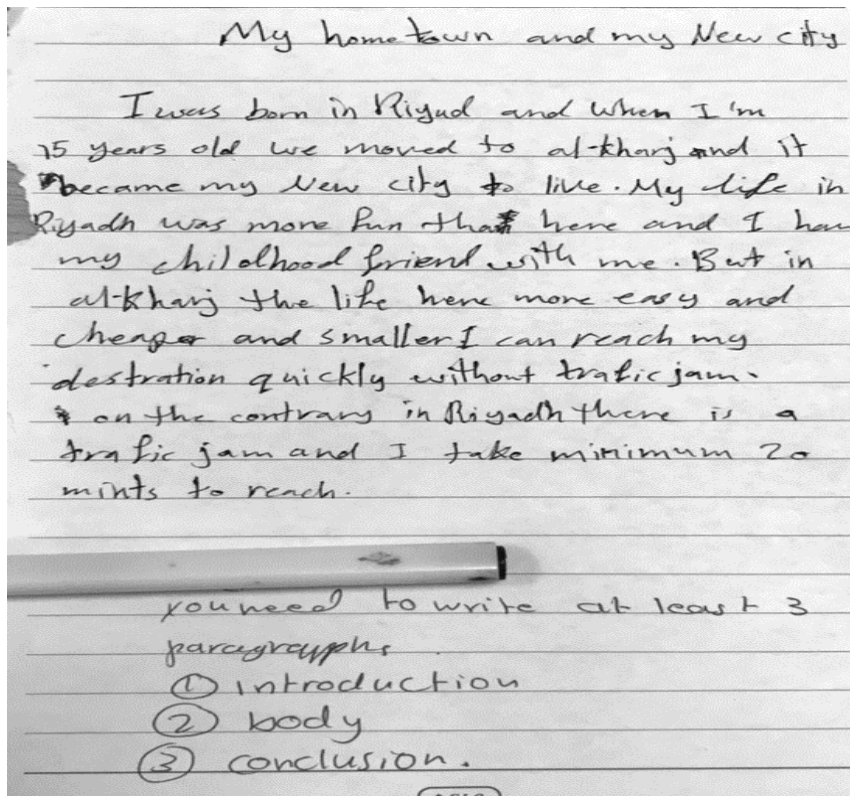 My hometown and my New city
I was born in Riyad and when I'm
15 years old we moved to al-kharj and it
became my New city to live. My life in
Riyadh was more fun that here and I hav
my childhood friend with me. But in
al-kharj the life here more easy and
cheaper and smaller I can reach my
destration quickly without trafic jam.
on the contrary in Riyadh there is a
trafic jam and I take minimum 20
mints to reach.
you need to write at least 3
paragrayphs
① introduction
② body
③ conclusion.